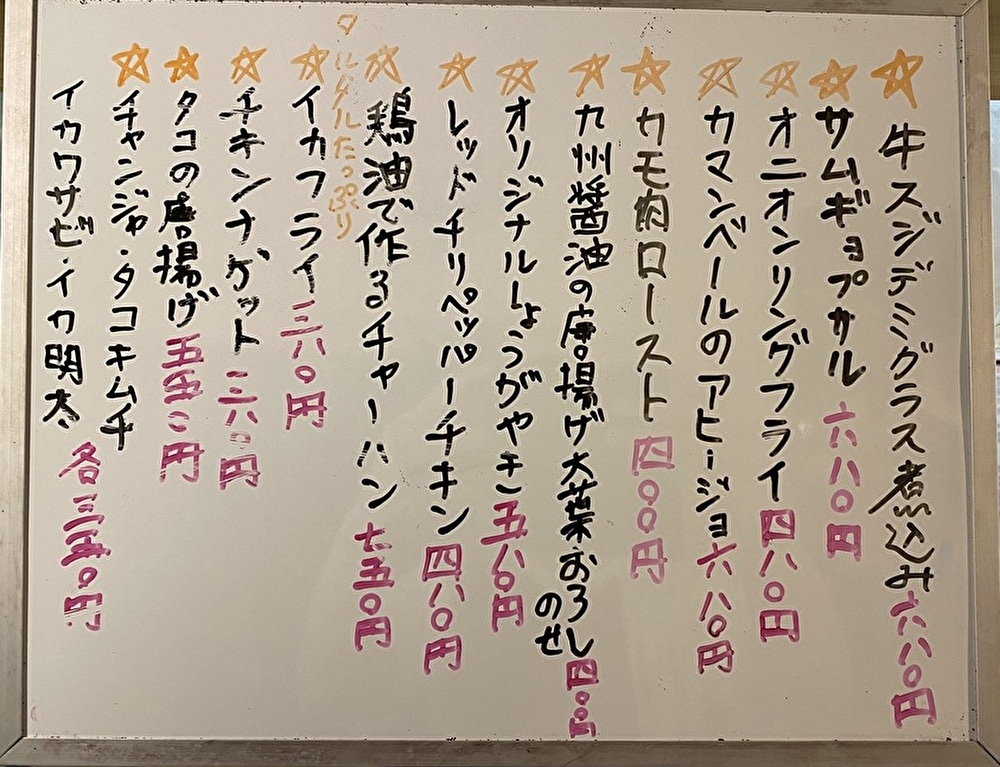 ☆牛スジデミグラス煮込み六八〇円
☆サムギョプサル 六八〇円
☆オニオンリングフライ四八〇円
☆カマンベールのアヒージョ六八〇円
☆カモ肉ロースト四〇〇円
☆九州醤油の唐揚げ大葉おろしのせ四〇〇円
☆オリジナルしょうがやき五八〇円
☆レッドチリペッパーチキン四八〇円
☆鶏油で作るチャーハン七五〇円
タルタルたっぷり
☆イカフライ三八〇円
☆チキンナゲット三八〇円
☆タコの唐揚げ五五〇円
☆チャンジャ・タコキムチ
イカワサビ・イカ明太
各三五〇円